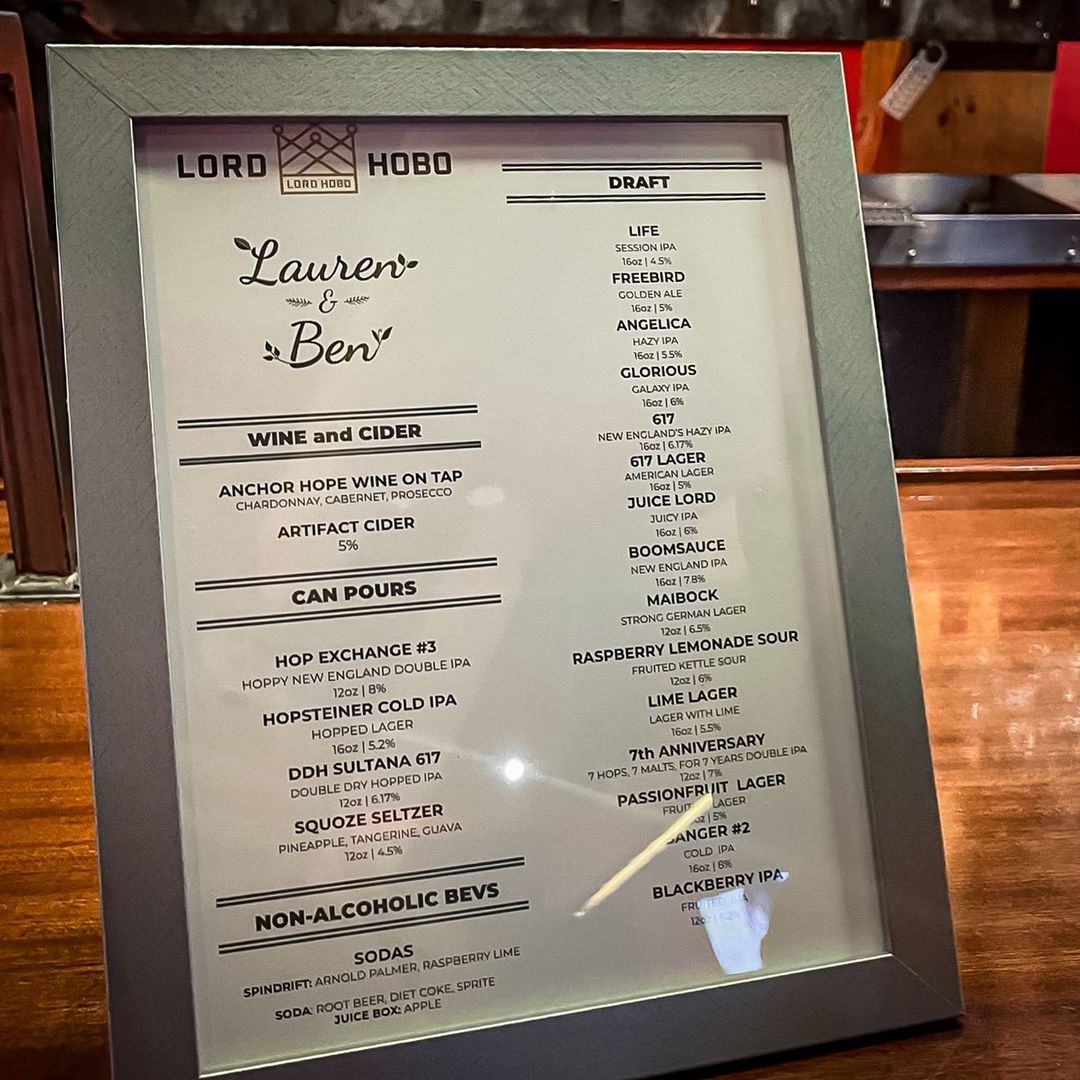 LORD HOBO
LORD HOBO
Lauren
&
Ben
WINE and CIDER
ANCHOR HOPE WINE ON TAP
CHARDONNAY, CABERNET, PROSECCO
ARTIFACT CIDER
5%
CAN POURS
HOP EXCHANGE #3
HOPPY NEW ENGLAND DOUBLE IPA
12oz | 8%
HOPSTEINER COLD IPA
HOPPED LAGER
16oz | 5.2%
DDH SULTANA 617
DOUBLE DRY HOPPED IPA
12oz | 6.17%
SQUOZE SELTZER
PINEAPPLE, TANGERINE, GUAVA
12oz | 4.5%
NON-ALCOHOLIC BEVS
SODAS
SPINDRIFT: ARNOLD PALMER, RASPBERRY LIME
SODA: ROOT BEER, DIET COKE, SPRITE
JUICE BOX: APPLE
DRAFT
LIFE
SESSION IPA
16oz | 4.5%
FREEBIRD
GOLDEN ALE
16oz | 5%
ANGELICA
HAZY IPA
16oz | 5.5%
GLORIOUS
GALAXY IPA
16oz | 6%
617
NEW ENGLAND'S HAZY IPA
16oz | 6.17%
617 LAGER
AMERICAN LAGER
16oz | 5%
JUICE LORD
JUICY IPA
16oz | 6%
BOOMSAUCE
NEW ENGLAND IPA
16oz | 7.8%
MAIBOCK
STRONG GERMAN LAGER
12oz | 6.5%
RASPBERRY LEMONADE SOUR
FRUITED KETTLE SOUR
12oz | 6%
LIME LAGER
LAGER WITH LIME
16oz | 5.5%
7th ANNIVERSARY
7 HOPS, 7 MALTS, FOR 7 YEARS DOUBLE IPA
12oz | 7%
PASSIONFRUIT LAGER
LAGER
5%
#2
COLD IPA
16oz |
BLACKBERRY IPA